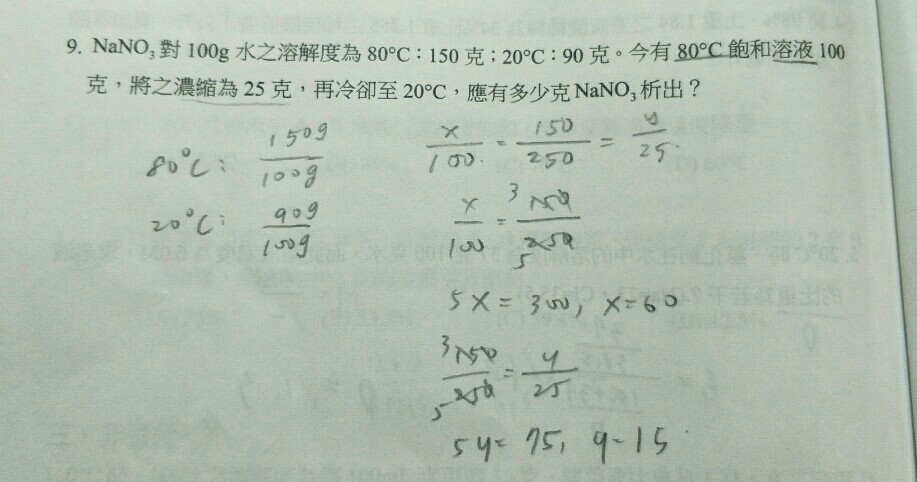 9. NaNO₃ 對 100g 水之溶解度為 80°C：150 克；20°C：90 克。今有 80°C 飽和溶液 100
克，將之濃縮為 25 克，再冷卻至 20°C，應有多少克 NaNO₃ 析出？
80°C: 150g/100g
x/100 = 150/250 = y/25
20°C: 90g/100g
x/100 = 3 150/250 5
5x = 300, x = 60
3 150/250 5 = y/25
5y = 75, y = 15